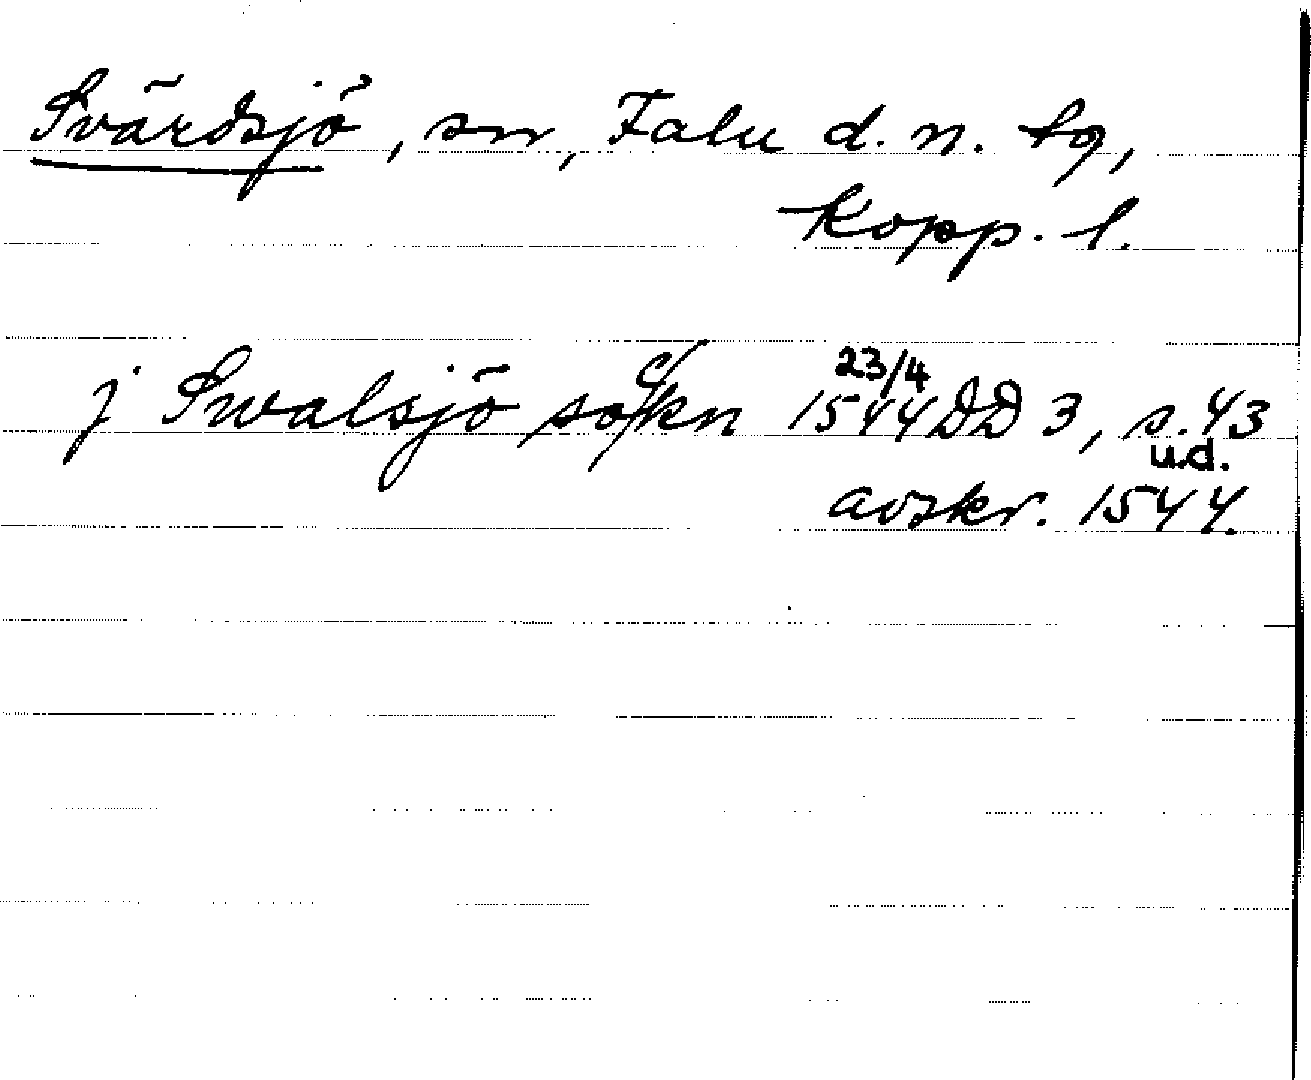 Svärdsjö, sn, Falu d. n. tg,
Kopp. l.
j Swalsjö sockn 23/4 1544 DD 3, s. 43
u.d.
avskr. 1544.